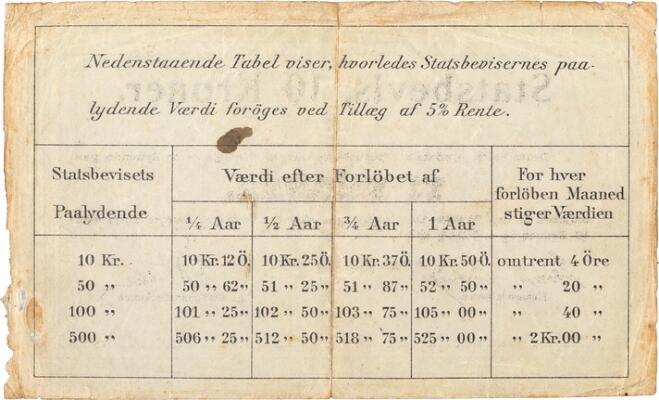 Nedenstaaende Tabel viser, hvorledes Statsbevisernes paa-
lydende Værdi foröges ved Tillæg af 5% Rente.
Statsbevisets Paalydende
Værdi efter Forlöbet af
For hver forlöben Maaned stiger Værdien
¼ Aar ½ Aar ¾ Aar 1 Aar
10 Kr. 10 Kr. 12 Ö. 10 Kr. 25 Ö. 10 Kr. 37 Ö. 10 Kr. 50 Ö. omtrent 4 Öre
50 „ 50 „ 62 „ 51 „ 25 „ 51 „ 87 „ 52 „ 50 „ „ 20 „
100 „ 101 „ 25 „ 102 „ 50 „ 103 „ 75 „ 105 „ 00 „ „ 40 „
500 „ 506 „ 25 „ 512 „ 50 „ 518 „ 75 „ 525 „ 00 „ „ 2 Kr. 00 „
Statsbevis, 10 Kroner.